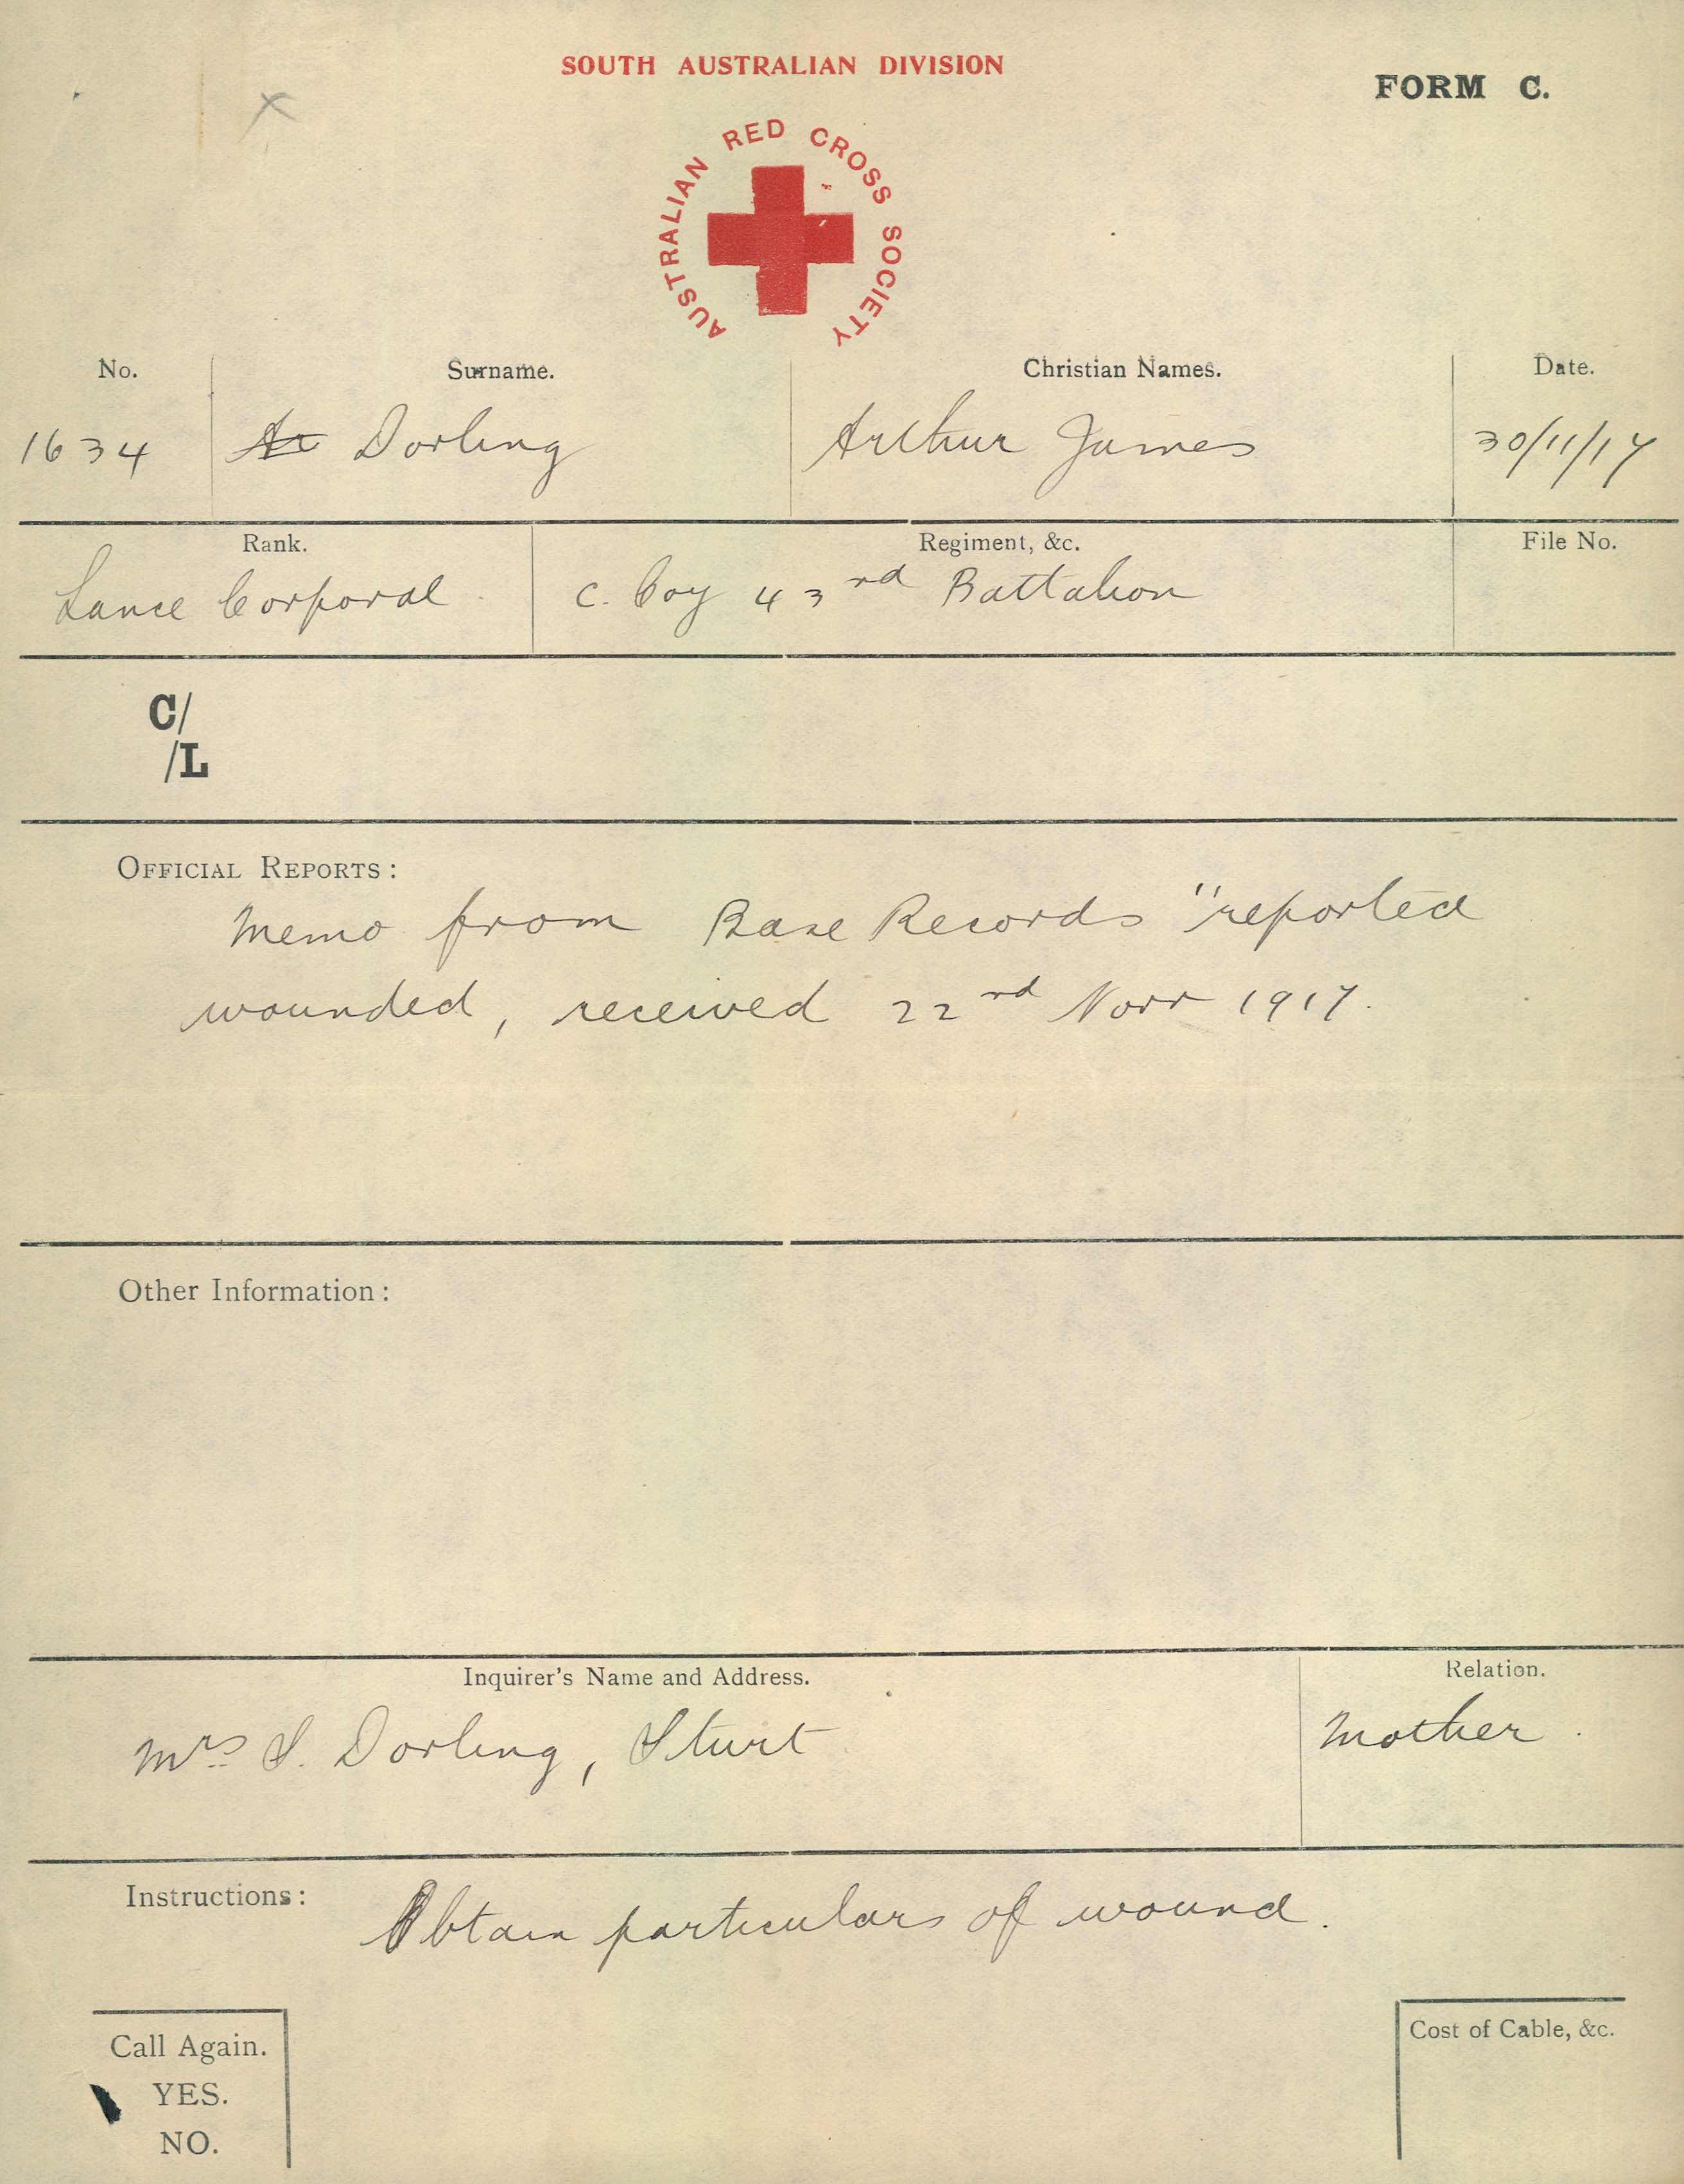 SOUTH AUSTRALIAN DIVISION
FORM C.
AUSTRALIAN RED CROSS SOCIETY
No. Surname. Christian Names. Date.
1634 Dorling Arthur James 30/11/17
Rank. Regiment, &c. File No.
Lance Corporal C. Coy 43rd Battalion
C/
/L
OFFICIAL REPORTS:
Memo from Base Records "reported
wounded, received 22nd Novr 1917.
Other Information:
Inquirer's Name and Address. Relation.
Mrs S. Dorling, Sturt Mother.
Instructions: Obtain particulars of wound.
Call Again.
YES.
NO.
Cost of Cable, &c.